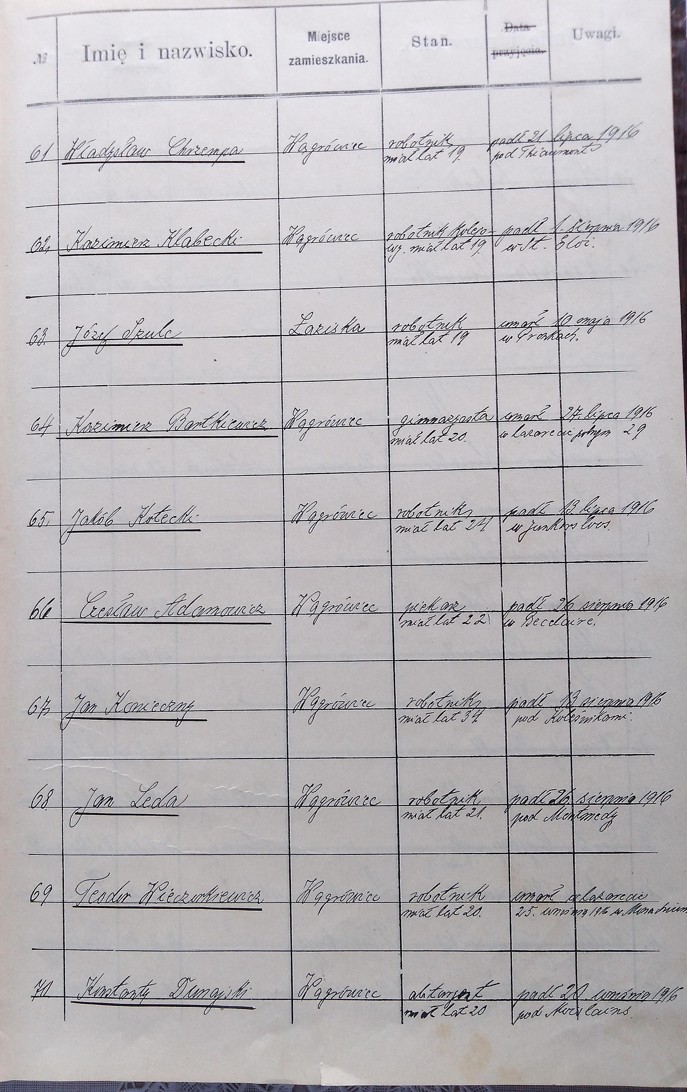 № Imię i nazwisko. Miejsce zamieszkania. Stan. Data przyjęcia. Uwagi.
61 Władysław Chrzempa Wągrówiec robotnik padł 21 lipca 1916
miał lat 19 pod Thiaumont
62. Kazimierz Klabecki Wągrówiec robotnik kolejo- padł 1. sierpnia 1916
wy. miał lat 19 w St. Eloi.
63. Józef Szulc Łaziska robotnik umarł 10 maja 1916
miał lat 19 w
64 Kazimierz Bartkiewicz Wągrówiec gimnazjasta umarł 27 lipca 1916
miał lat 20. w lazarecie polnym 29
65. Jakób Kotecki Wągrówiec robotnik padł 13 lipca 1916
miał lat 24 w
66 Czesław Adamowicz Wągrówiec piekarz padł 26 sierpnia 1916
miał lat 22 w Becelaire.
67. Jan Konieczny Wągrówiec robotnik padł 13 sierpnia 1916
miał lat 34 pod
68. Jan Leda Wągrówiec robotnik padł 26 sierpnia 1916
miał lat 21. pod Montmedy
69 Teodor Wieczorkiewicz Wągrówiec robotnik umarł w lazarecie
miał lat 20. 25. września 1916 w
70. Konstanty Dunajski Wągrówiec abiturjent padł 20 września 1916
miał lat 20 pod